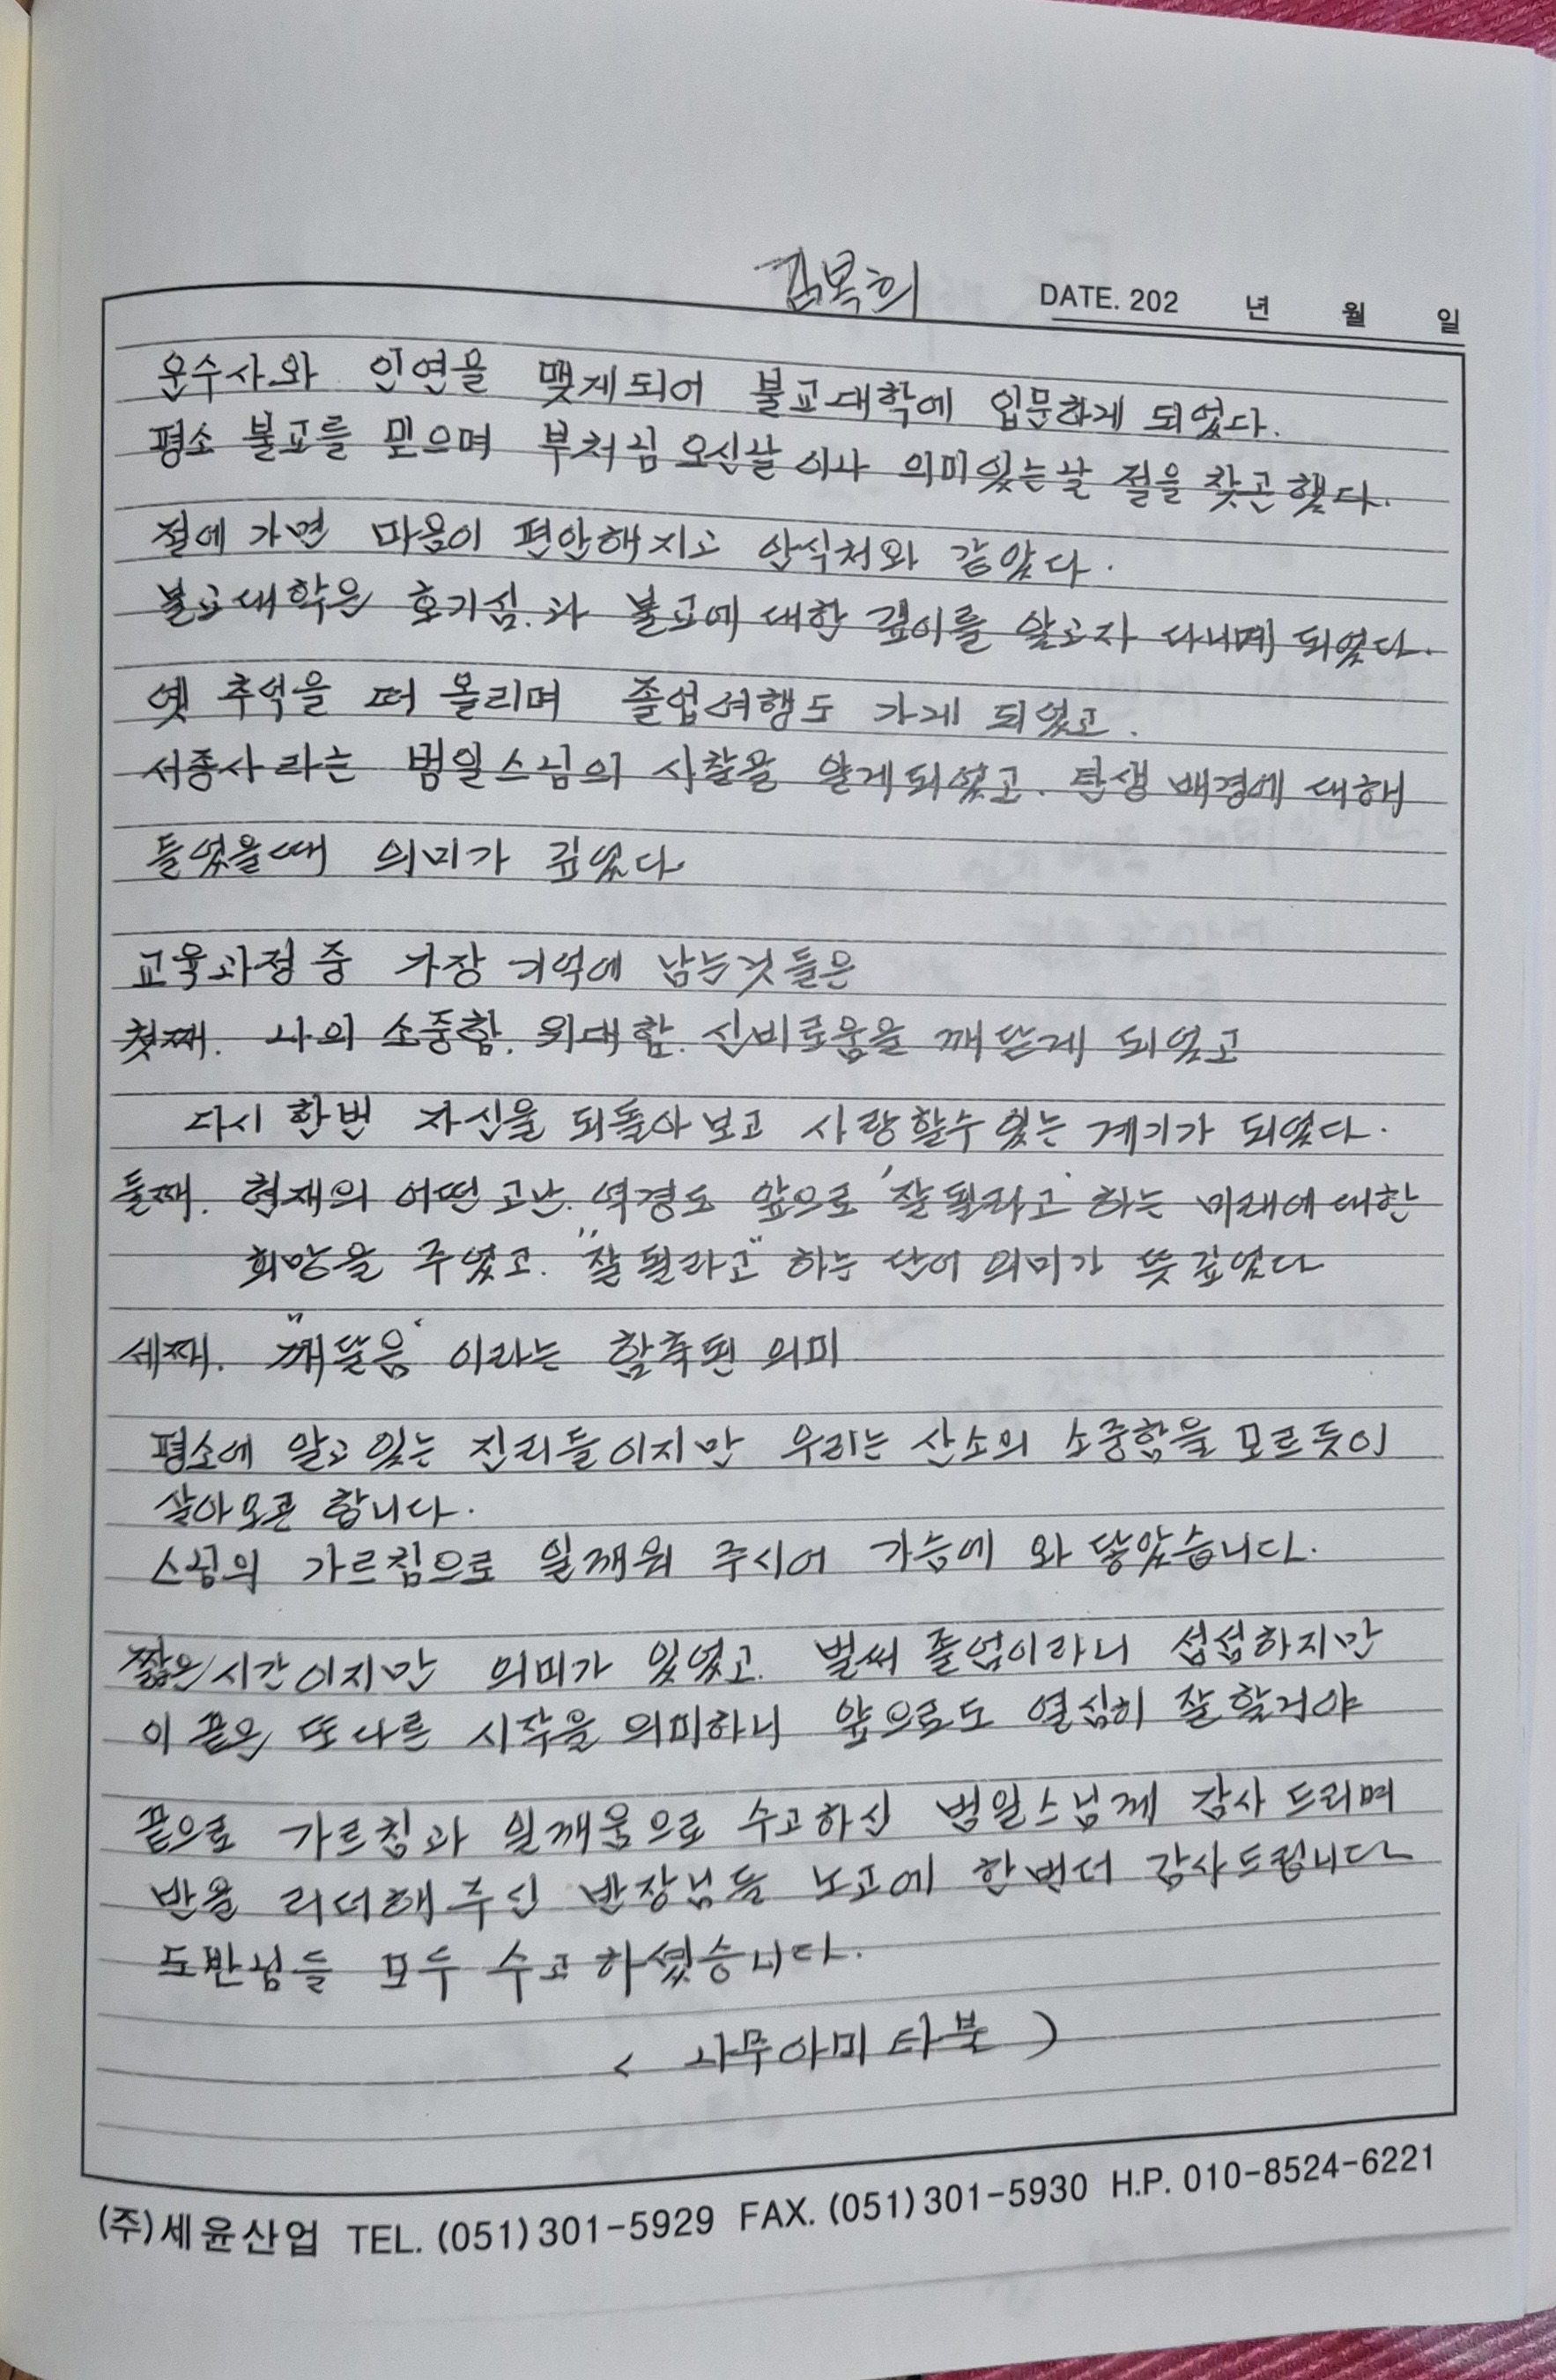 김복희
DATE. 202 년 월 일
운수사와 인연을 맺게되어 불교대학에 입문하게 되었다.
평소 불교를 믿으며 부처님 오신날 이나 의미있는날 절을 찾곤했다.
절에 가면 마음이 편안해지고 안식처와 같았다.
불교대학은 호기심.과 불교에 대한 깊이를 알고자 다니게 되었다.
옛 추억을 떠 올리며 졸업여행도 가게 되었고.
서종사 라는 범일스님의 사찰을 알게되었고. 탄생 배경에 대해
들었을때 의미가 깊었다.
교육과정 중 가장 기억에 남는것들은
첫째. 나의 소중함. 위대함. 신비로움을 깨닫게 되었고
다시 한번 자신을 되돌아 보고 사랑할수 있는 계기가 되었다.
둘째. 현재의 어떤 고난. 역경도 앞으로 '잘될라고' 하는 미래에 대한
희망을 주었고. "잘될라고" 하는 단어 의미가 뜻 깊었다
세째. "깨달음" 이라는 함축된 의미
평소에 알고 있는 진리들 이지만 우리는 산소의 소중함을 모르듯이
살아오곤 합니다.
스님의 가르침으로 일깨워 주시어 가슴에 와 닿았습니다.
짧은 시간이지만 의미가 있었고. 벌써 졸업이라니 섭섭하지만
이 끝은 또다른 시작을 의미하니 앞으로도 열심히 잘할거야
끝으로 가르침과 일깨움으로 수고하신 범일스님께 감사 드리며
반을 리더해 주신 반장님들 노고에 한번더 감사드립니다
도반님들 모두 수고 하셨습니다.
< 나무아미 타불 )
(주)세윤산업 TEL. (051)301-5929 FAX. (051)301-5930 H.P. 010-8524-6221